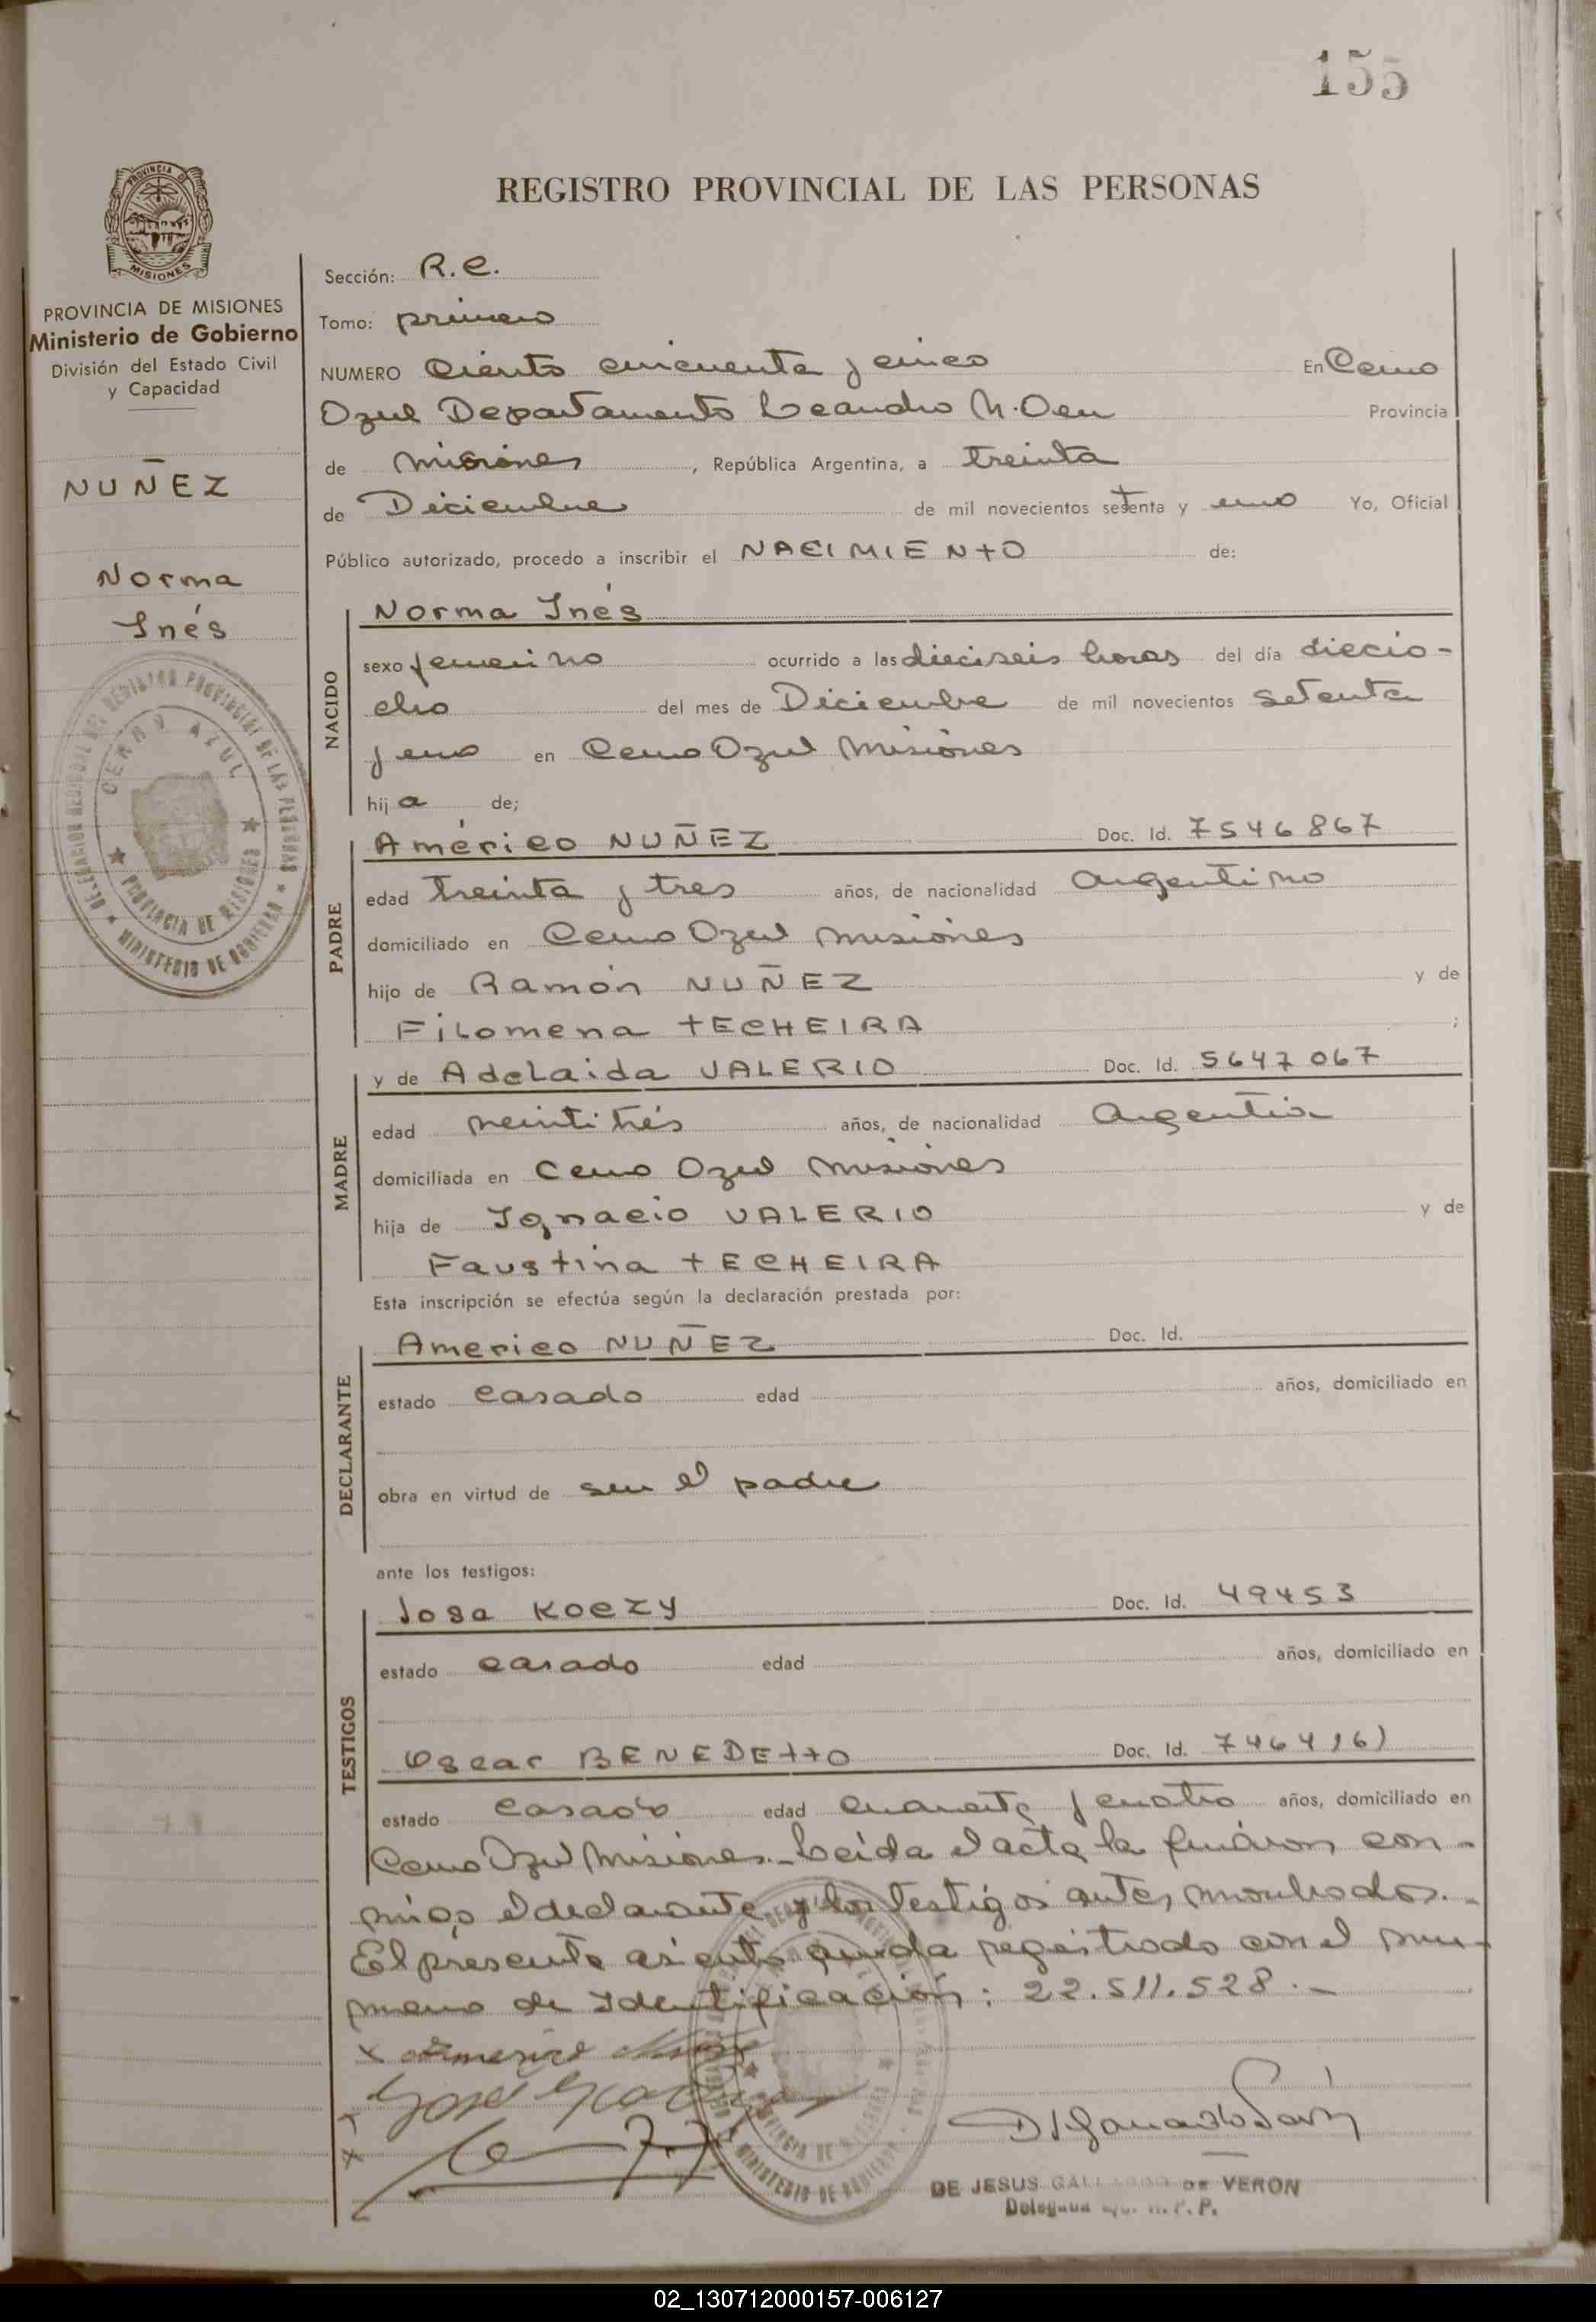 155
PROVINCIA DE MISIONES
REGISTRO PROVINCIAL DE LAS PERSONAS
PROVINCIA DE MISIONES
Ministerio de Gobierno
División del Estado Civil
y Capacidad
NUÑEZ
Norma
Inés
CERRO AZUL
PROVINCIA DE MISIONES
MINISTERIO DE GOBIERNO
Sección: R.C.
Tomo: primero
NUMERO Ciento cincuenta y cinco En Cerro
Azul Departamento Leandro N. Alem Provincia
de Misiones, República Argentina, a treinta
de Diciembre de mil novecientos setenta y uno Yo, Oficial
Público autorizado, procedo a inscribir el NACIMIENTO de:
NACIDO
Norma Inés
sexo femenino ocurrido a las dieciseis horas del día diecio-
cho del mes de Diciembre de mil novecientos setenta
y uno en Cerro Azul Misiones
hija de;
PADRE
Américo NUÑEZ Doc. Id. 7546867
edad treinta y tres años, de nacionalidad argentino
domiciliado en Cerro Azul Misiones
hijo de Ramón NUÑEZ y de
Filomena TECHEIRA ;
MADRE
y de Adelaida VALERIO Doc. Id. 5647067
edad veintitrés años, de nacionalidad Argentina
domiciliada en Cerro Azul Misiones
hija de Ignacio VALERIO y de
Faustina TECHEIRA
Esta inscripción se efectúa según la declaración prestada por:
DECLARANTE
Americo NUÑEZ Doc. Id.
estado casado edad años, domiciliado en
obra en virtud de ser el padre
ante los testigos:
TESTIGOS
KOCZY Doc. Id. 49453
estado casado edad años, domiciliado en
Oscar BENEDETTO Doc. Id.
estado casado edad cuarenta y cuatro años, domiciliado en
Cerro Azul Misiones.- Leída el acta la firmaron con-
migo el declarante y los testigos antes nombrados.-
El presente asiento queda registrado con el nu-
mero de Identificación: 22.511.528.-
DE JESUS GALLARDO DE VERON
02_130712000157-006127